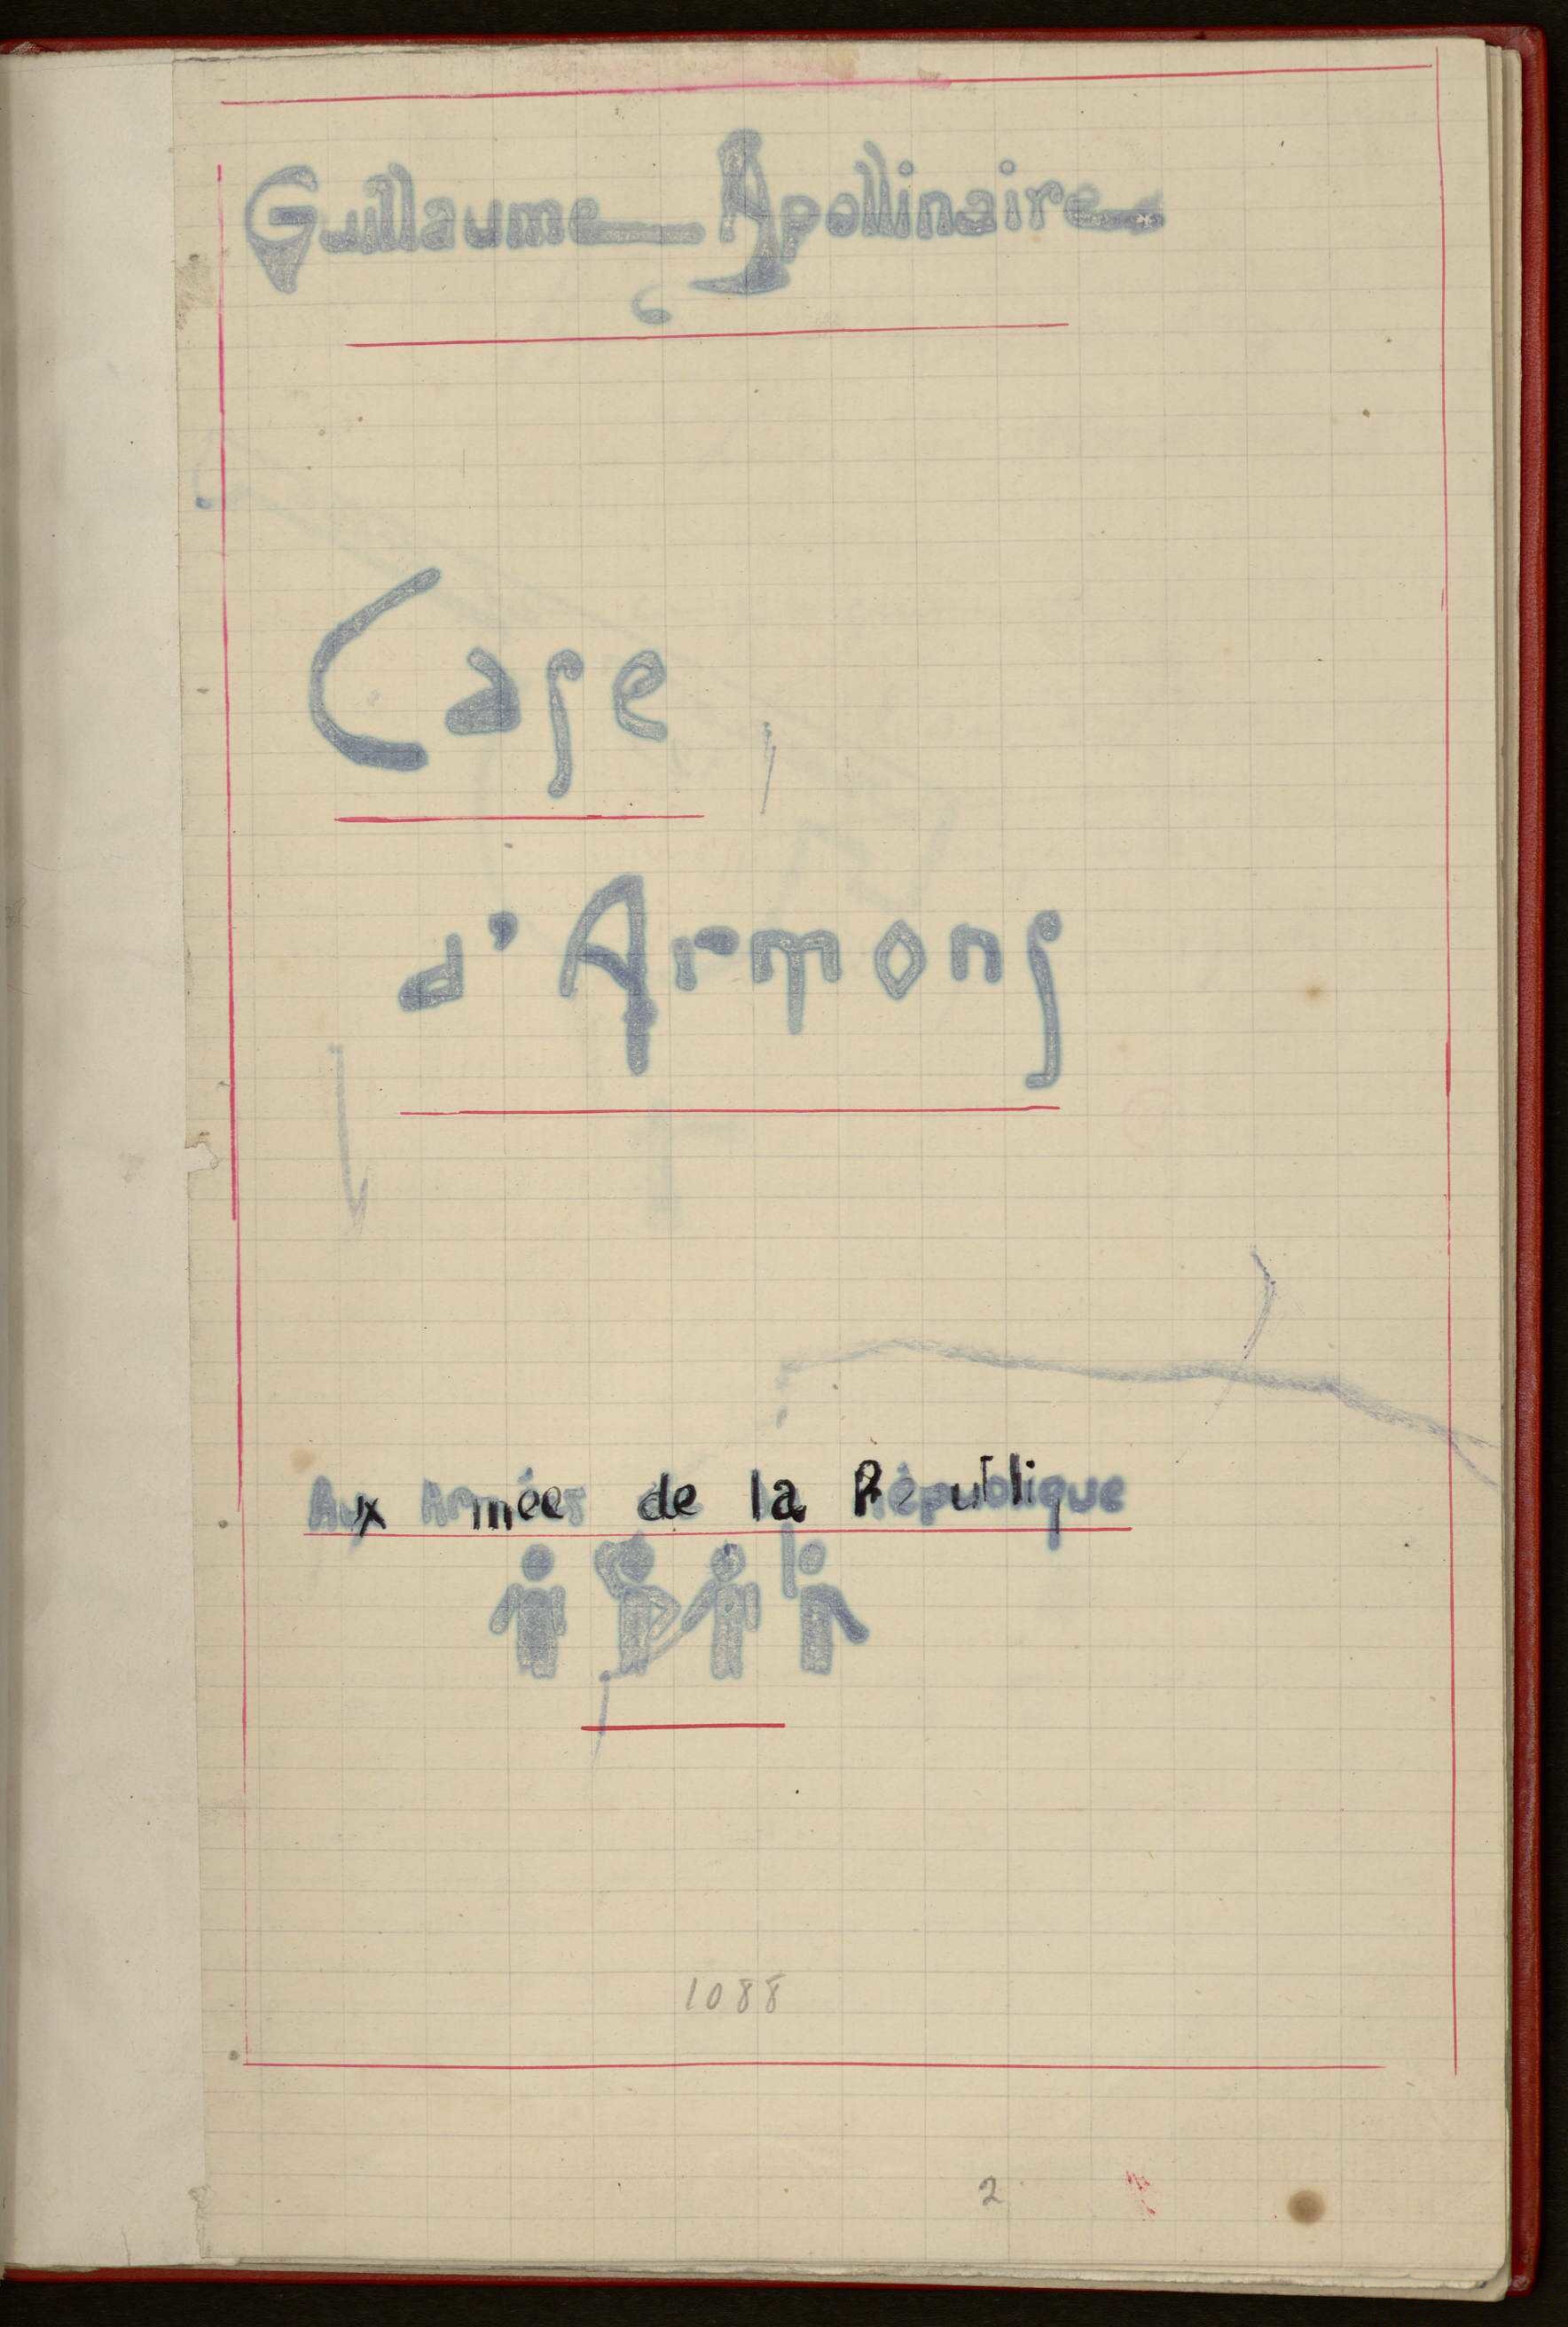 Guillaume Apollinaire
Case
d'Armons
Aux Armées de la République
1088
2